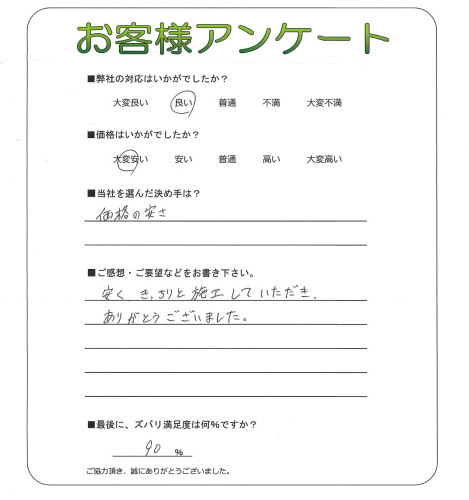 お客様アンケート
■弊社の対応はいかがでしたか？
大変良い 良い 普通 不満 大変不満
■価格はいかがでしたか？
大変安い 安い 普通 高い 大変高い
■当社を選んだ決め手は？
価格の安さ
■ご感想・ご要望などをお書き下さい。
安く きっちりと施工していただき、
ありがとうございました。
■最後に、ズバリ満足度は何%ですか？
90 %
ご協力頂き、誠にありがとうございました。